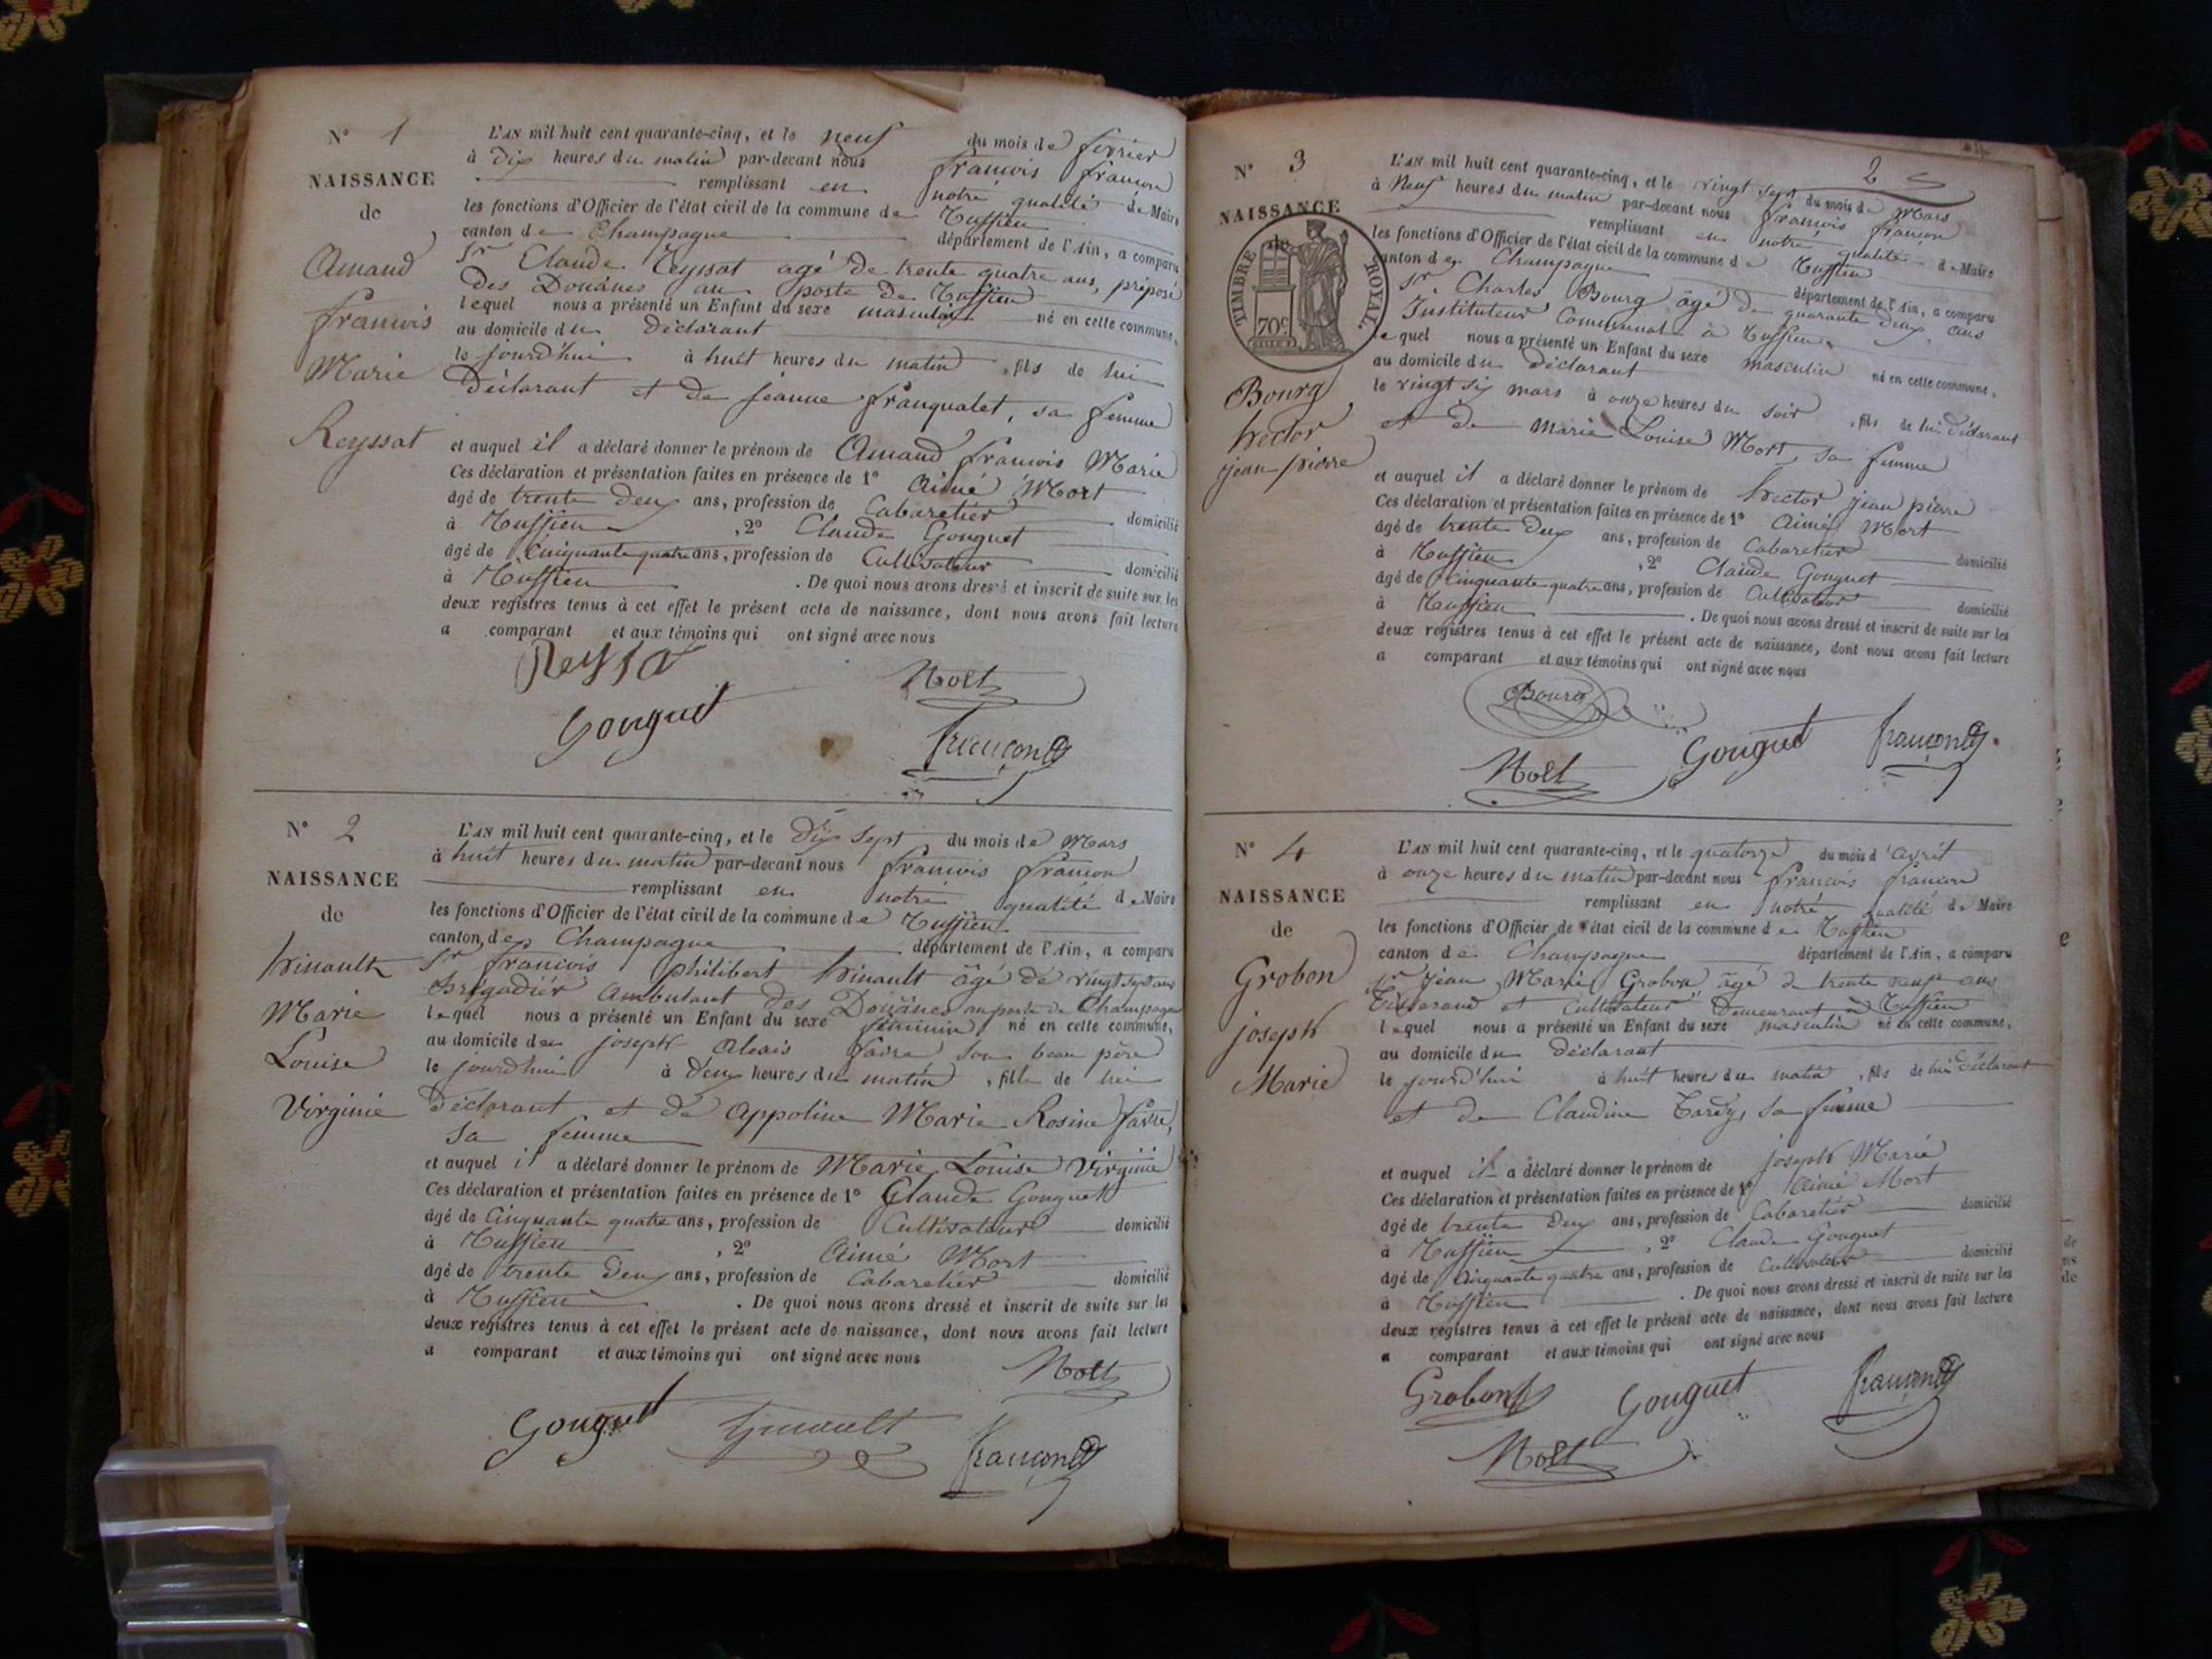 N° 1
NAISSANCE
de
Amand
françois
Marie
Reyssat
L'AN mil huit cent quarante-cinq, et le neuf du mois de février
à dix heures du matin par-devant nous françois françon
remplissant en notre qualité de Maire
les fonctions d'Officier de l'état civil de la commune de
canton de Champagne département de l'Ain, a comparu
Sr Claude Reyssat agé de trente quatre ans, préposé
des Douanes au poste de
lequel nous a présenté un Enfant du sexe masculin né en cette commune,
au domicile du Déclarant
le jourd'hui à huit heures du matin, fils de lui
Déclarant et de jeanne franquelet, sa femme
et auquel il a déclaré donner le prénom de Amand françois Marie
Ces déclaration et présentation faites en présence de 1° Aimé Mort
âgé de trente deux ans, profession de Cabaretier domicilié
à , 2° Claude Gouguet
âgé de Cinquante quatre ans, profession de Cultivateur domicilié
à . De quoi nous avons dressé et inscrit de suite sur les
deux registres tenus à cet effet le présent acte de naissance, dont nous avons fait lecture
a comparant et aux témoins qui ont signé avec nous
Gouguet
N° 2
NAISSANCE
de
Marie
Louise
Virginie
L'AN mil huit cent quarante-cinq, et le Dix Sept du mois de Mars
à huit heures du matin par-devant nous françois françon
remplissant en notre qualité de Maire
les fonctions d'Officier de l'état civil de la commune de
canton de Champagne département de l'Ain, a comparu
Sr françois philibert âgé de vingt sept ans
brigadier ambulant des Douanes au poste de Champagne
lequel nous a présenté un Enfant du sexe féminin, né en cette commune,
au domicile de joseph Alexis favre son beau père
le jourd'hui à deux heures du matin, fille de lui
Déclarant et de Appoline Marie Rosine favre,
sa femme
et auquel il a déclaré donner le prénom de Marie Louise Virginie
Ces déclaration et présentation faites en présence de 1° Claude Gouguet
âgé de Cinquante quatre ans, profession de Cultivateur domicilié
à , 2° Aimé Mort
âgé de trente deux ans, profession de Cabaretier domicilié
à . De quoi nous avons dressé et inscrit de suite sur les
deux registres tenus à cet effet le présent acte de naissance, dont nous avons fait lecture
a comparant et aux témoins qui ont signé avec nous
Gouguet
2
N° 3
NAISSANCE
de
TIMBRE ROYAL.
70c
Bourg
hector
jean pierre
L'AN mil huit cent quarante-cinq, et le vingt sept du mois de Mars
à Neuf heures du matin par-devant nous françois françon
remplissant en notre qualité de Maire
les fonctions d'Officier de l'état civil de la commune de
canton de Champagne département de l'Ain, a comparu
Sr. Charles Bourg âgé de quarante deux ans
Instituteur Communal à
lequel nous a présenté un Enfant du sexe masculin né en cette commune,
au domicile du Déclarant
le vingt six mars à onze heures du soir, fils de lui déclarant
et de Marie Louise Mort, sa femme
et auquel il a déclaré donner le prénom de hector jean pierre
Ces déclaration et présentation faites en présence de 1° Aimé Mort
âgé de trente deux ans, profession de Cabaretier domicilié
à , 2° Claude Gouguet
âgé de Cinquante quatre ans, profession de Cultivateur domicilié
à . De quoi nous avons dressé et inscrit de suite sur les
deux registres tenus à cet effet le présent acte de naissance, dont nous avons fait lecture
a comparant et aux témoins qui ont signé avec nous
Bourg
Gouguet
N° 4
NAISSANCE
de
Grobon
joseph
Marie
L'AN mil huit cent quarante-cinq, et le quatorze du mois d'avril
à onze heures du matin par-devant nous françois françon
remplissant en notre qualité de Maire
les fonctions d'Officier de l'état civil de la commune de
canton de Champagne département de l'Ain, a comparu
Sr jean Marie Grobon, âgé de trente neuf ans
et cultivateur demeurant à
lequel nous a présenté un Enfant du sexe masculin né en cette commune,
au domicile du Déclarant
le jourd'hui à huit heures du matin, fils de lui Déclarant
et de Claudine Tardy, sa femme
et auquel il a déclaré donner le prénom de joseph Marie
Ces déclaration et présentation faites en présence de 1° Aimé Mort
âgé de trente deux ans, profession de Cabaretier domicilié
à , 2° Claude Gouguet
âgé de Cinquante quatre ans, profession de Cultivateur domicilié
à . De quoi nous avons dressé et inscrit de suite sur les
deux registres tenus à cet effet le présent acte de naissance, dont nous avons fait lecture
a comparant et aux témoins qui ont signé avec nous
Grobon Gouguet